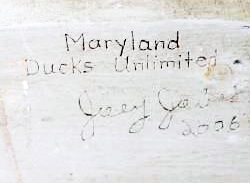 Maryland
Ducks Unlimited
Joey
2006